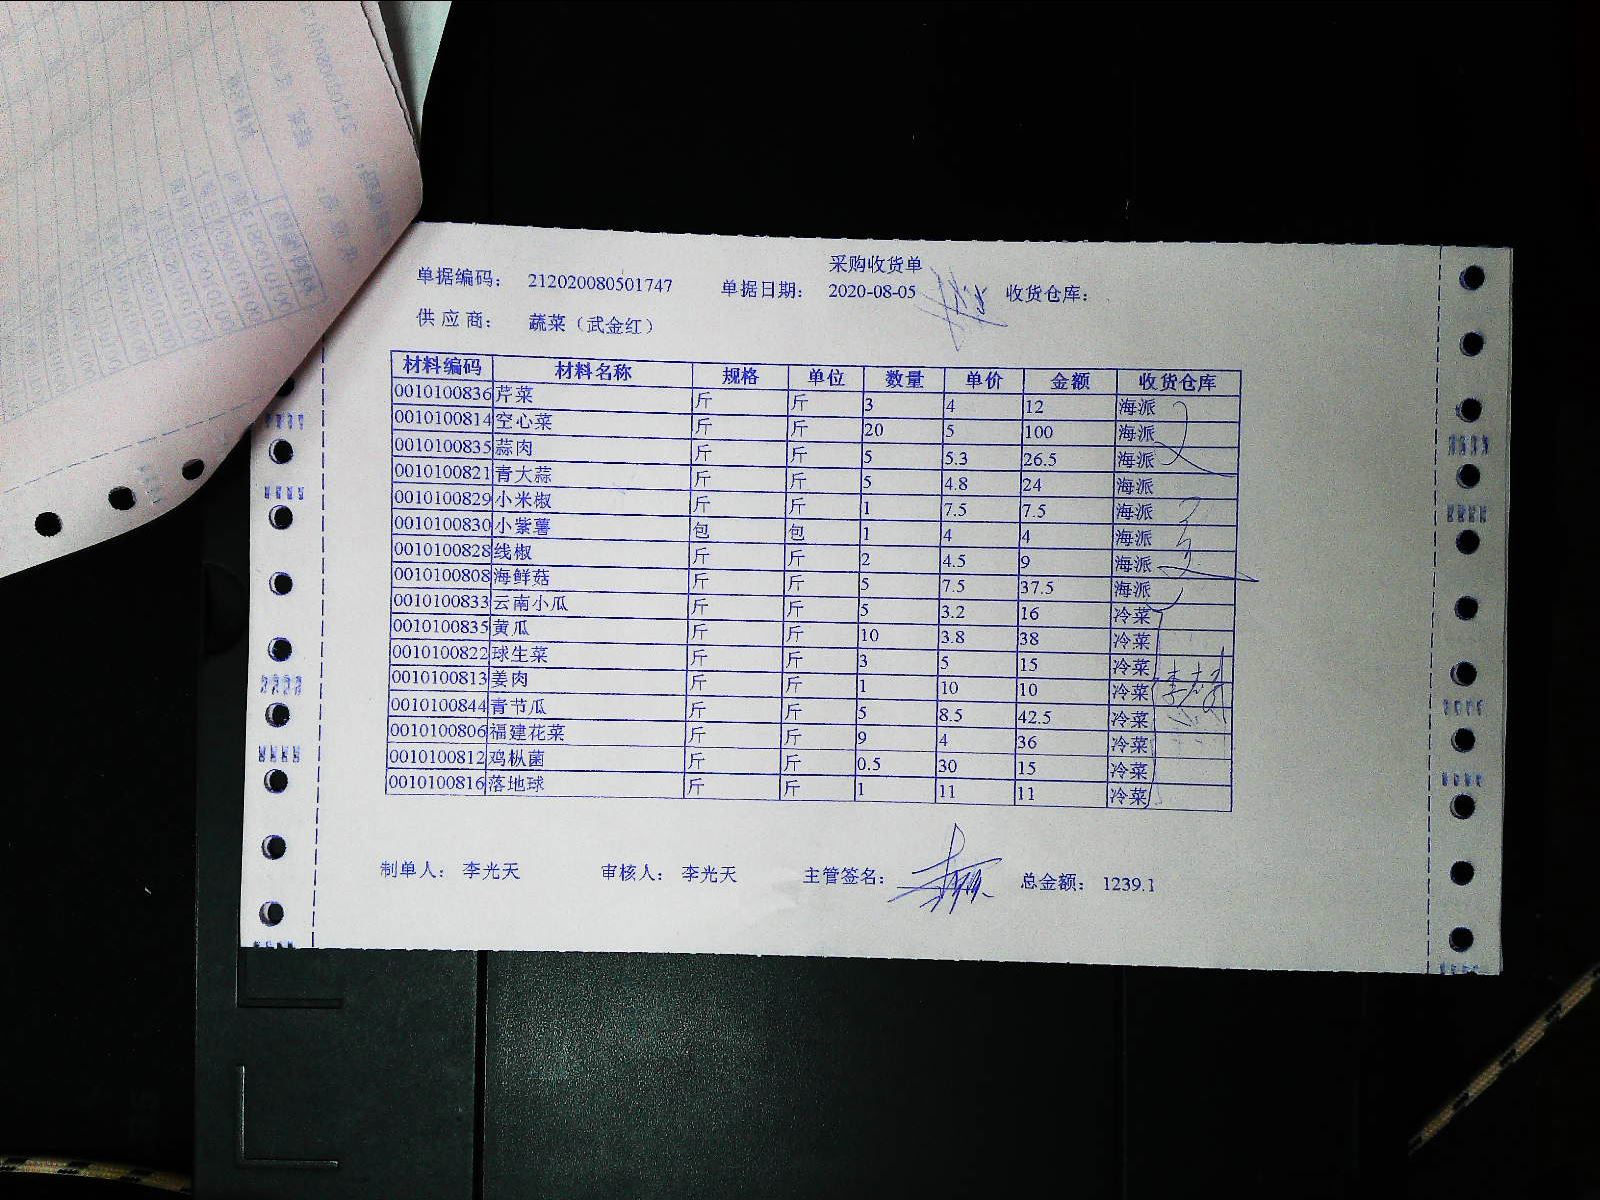 采购收货单
单据编码： 212020080501747 单据日期： 2020-08-05 收货仓库：
供应商： 蔬菜（武金红）
材料编码 材料名称 规格 单位 数量 单价 金额 收货仓库
0010100836 芹菜 斤 斤 3 4 12 海派
0010100814 空心菜 斤 斤 20 5 100 海派
0010100835 蒜肉 斤 斤 5 5.3 26.5 海派
0010100821 青大蒜 斤 斤 5 4.8 24 海派
0010100829 小米椒 斤 斤 1 7.5 7.5 海派
0010100830 小紫薯 包 包 1 4 4 海派
0010100828 线椒 斤 斤 2 4.5 9 海派
0010100808 海鲜菇 斤 斤 5 7.5 37.5 海派
0010100833 云南小瓜 斤 斤 5 3.2 16 冷菜
0010100835 黄瓜 斤 斤 10 3.8 38 冷菜
0010100822 球生菜 斤 斤 3 5 15 冷菜
0010100813 姜肉 斤 斤 1 10 10 冷菜
0010100844 青节瓜 斤 斤 5 8.5 42.5 冷菜
0010100806 福建花菜 斤 斤 9 4 36 冷菜
0010100812 鸡枞菌 斤 斤 0.5 30 15 冷菜
0010100816 落地球 斤 斤 1 11 11 冷菜
制单人： 李光天 审核人： 李光天 主管签名： 总金额： 1239.1